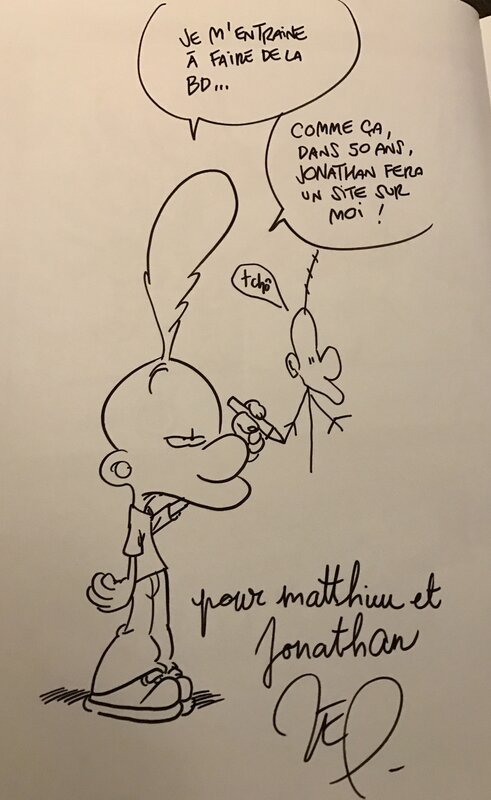 JE M'ENTRAINE
À FAIRE DE LA
BD...
COMME ÇA,
DANS 50 ANS,
JONATHAN FERA
UN SITE SUR
MOI !
tchô
pour matthieu et
Jonathan
ZEP